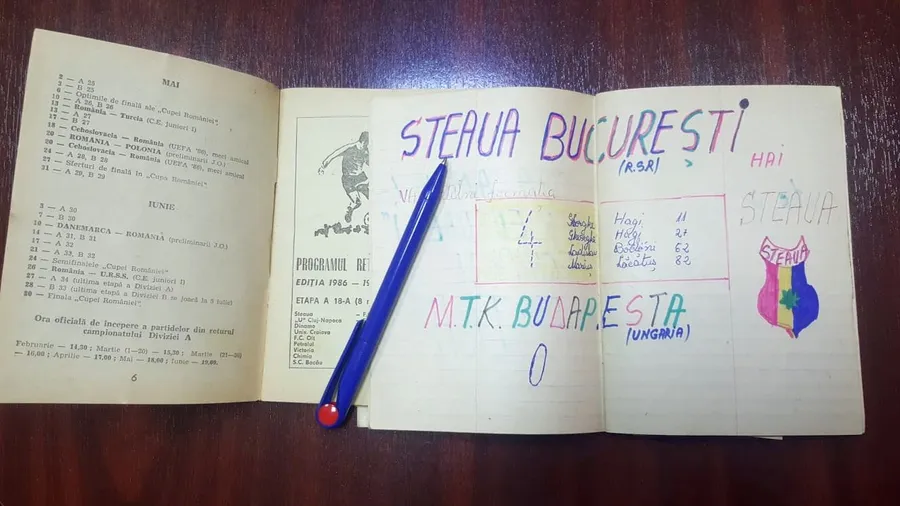 MAI
2 — A 25
3 — B 25
6 — Optimile de finală ale „Cupei României".
10 — A 26, B 26
13 — România — Turcia (C.E. juniori I)
17 — A 27
17 — B 27
18 — Cehoslovacia — România (UEFA '88), meci amical
20 — ROMÂNIA — POLONIA (preliminarii J.O.)
20 — Cehoslovacia — România (UEFA '88), meci amical
24 — A 28, B 28
27 — Sferturi de finală în „Cupa României".
31 — A 29, B 29
IUNIE
3 — A 30
7 — B 30
10 — DANEMARCA — ROMÂNIA (preliminarii J.O.)
14 — A 31, B 31
17 — A 32
21 — A 33, B 32
24 — Semifinalele „Cupei României"
26 — România — U.R.S.S. (C.E. juniori I)
27 — A 34 (ultima etapă a Diviziei A)
28 — B 33 (ultima etapă a Diviziei B se joacă la
30 — Finala „Cupei României".
Ora oficială de începere a partidelor din returul
campionatului Diviziei A
Februarie — 14,30; Martie (1—20) — 15,30; Martie
— 16,00; Aprilie — 17,00; Mai — 18,00; Iunie —
6
PROGRAMUL RE
EDIȚIA 1986 — 19
ETAPA A 18-A (8
Steaua — F.
„U" Cluj-Napoca
Dinamo
Univ. Craiova
F.C. Olt
Petrolul
Victoria
Chimia
S.C. Bacău
STEAUA BUCUREȘTI
(R.S.R)
HAI
STEAUA
STEAUA
4
Gheorghe Hagi 11
Gheorghe Hagi 27
Bölöni 62
Marius Lăcătuș 82
M.T.K. BUDAPESTA
(UNGARIA)
0